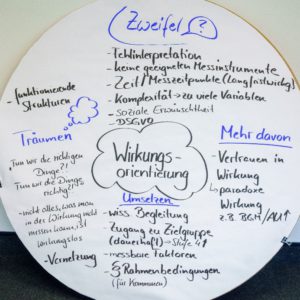 Zweifel ?
- Fehlinterpretation
- keine geeigneten Messinstrumente
- Zeit / Messzeitpunkte (langfristwirkg)
- Komplexität → zu viele Variablen
- soziale Erwünschtheit
- DSGVO
- funktionierende
Strukturen
Träumen
"Tun wir die richtigen
Dinge?!
Tun wir die Dinge
richtig?!"
- nicht alles, was man
in der Wirkung nicht
messen kann, ist
wirkungslos
- Vernetzung
Wirkungs-
orientierung
Mehr davon
- Vertrauen in
Wirkung
↳ paradoxe
Wirkung
z.B. BGM/AU↑
Umsetzen
- wiss Begleitung
- Zugang zu Zielgruppe
(dauerhaft) → Stufe 4↑
- messbare Faktoren
- § Rahmenbedingungen
(für Kommunen)